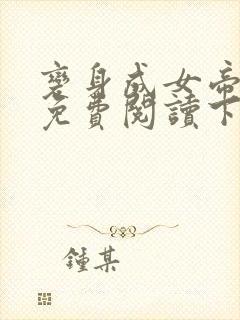 變身成女帝
免費閱讀下
鍾某